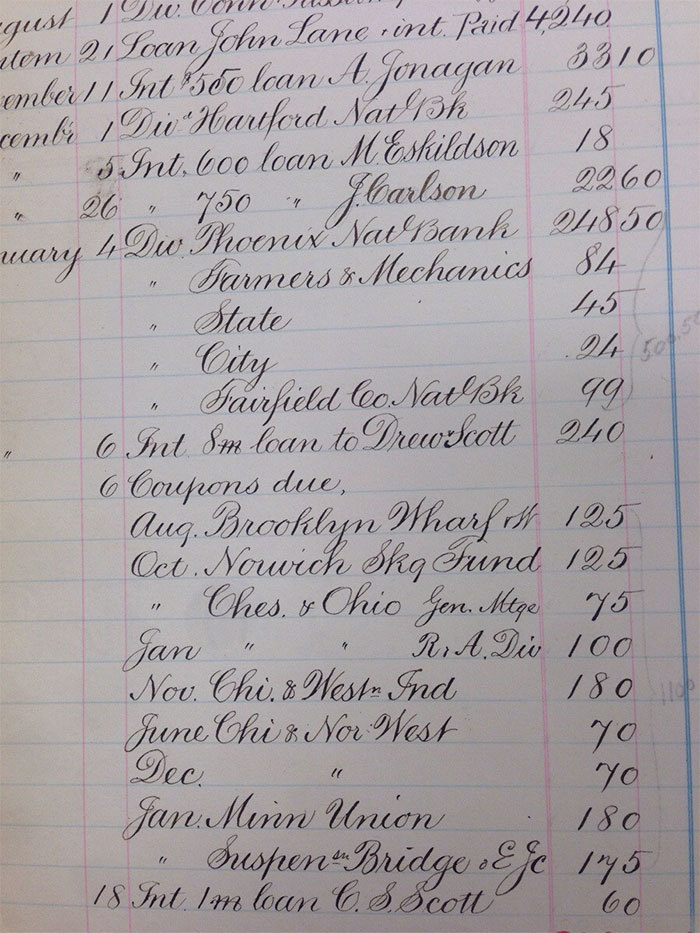 ugust 1 Div. Conn.
ntem 21 Loan John Lane & int. Paid 4,240
ember 11 Int $550 loan A. Jonagan 33 10
cembr 1 Div Hartford Natl Bk 245
" 5 Int. 600 loan M. Eskildson 18
" 26 " 750 " J. Carlson 22 60
nuary 4 Div Phoenix Natl Bank 248 50
" Farmers & Mechanics 84
" State 45
" City 24
" Fairfield Co. Natl Bk 99
" 6 Int 8m loan to Drew & Scott 240
6 Coupons due,
Aug. Brooklyn Wharf 125
Oct. Norwich Skg Fund 125
" Ches. & Ohio Gen. Mtge 75
Jan " " R. & A. Div 100
Nov. Chi. & Westn Ind 180
June Chi & Nor West 70
Dec. " 70
Jan. Minn Union 180
" Suspensn Bridge & E Jc 175
18 Int 1m loan C. S. Scott 60